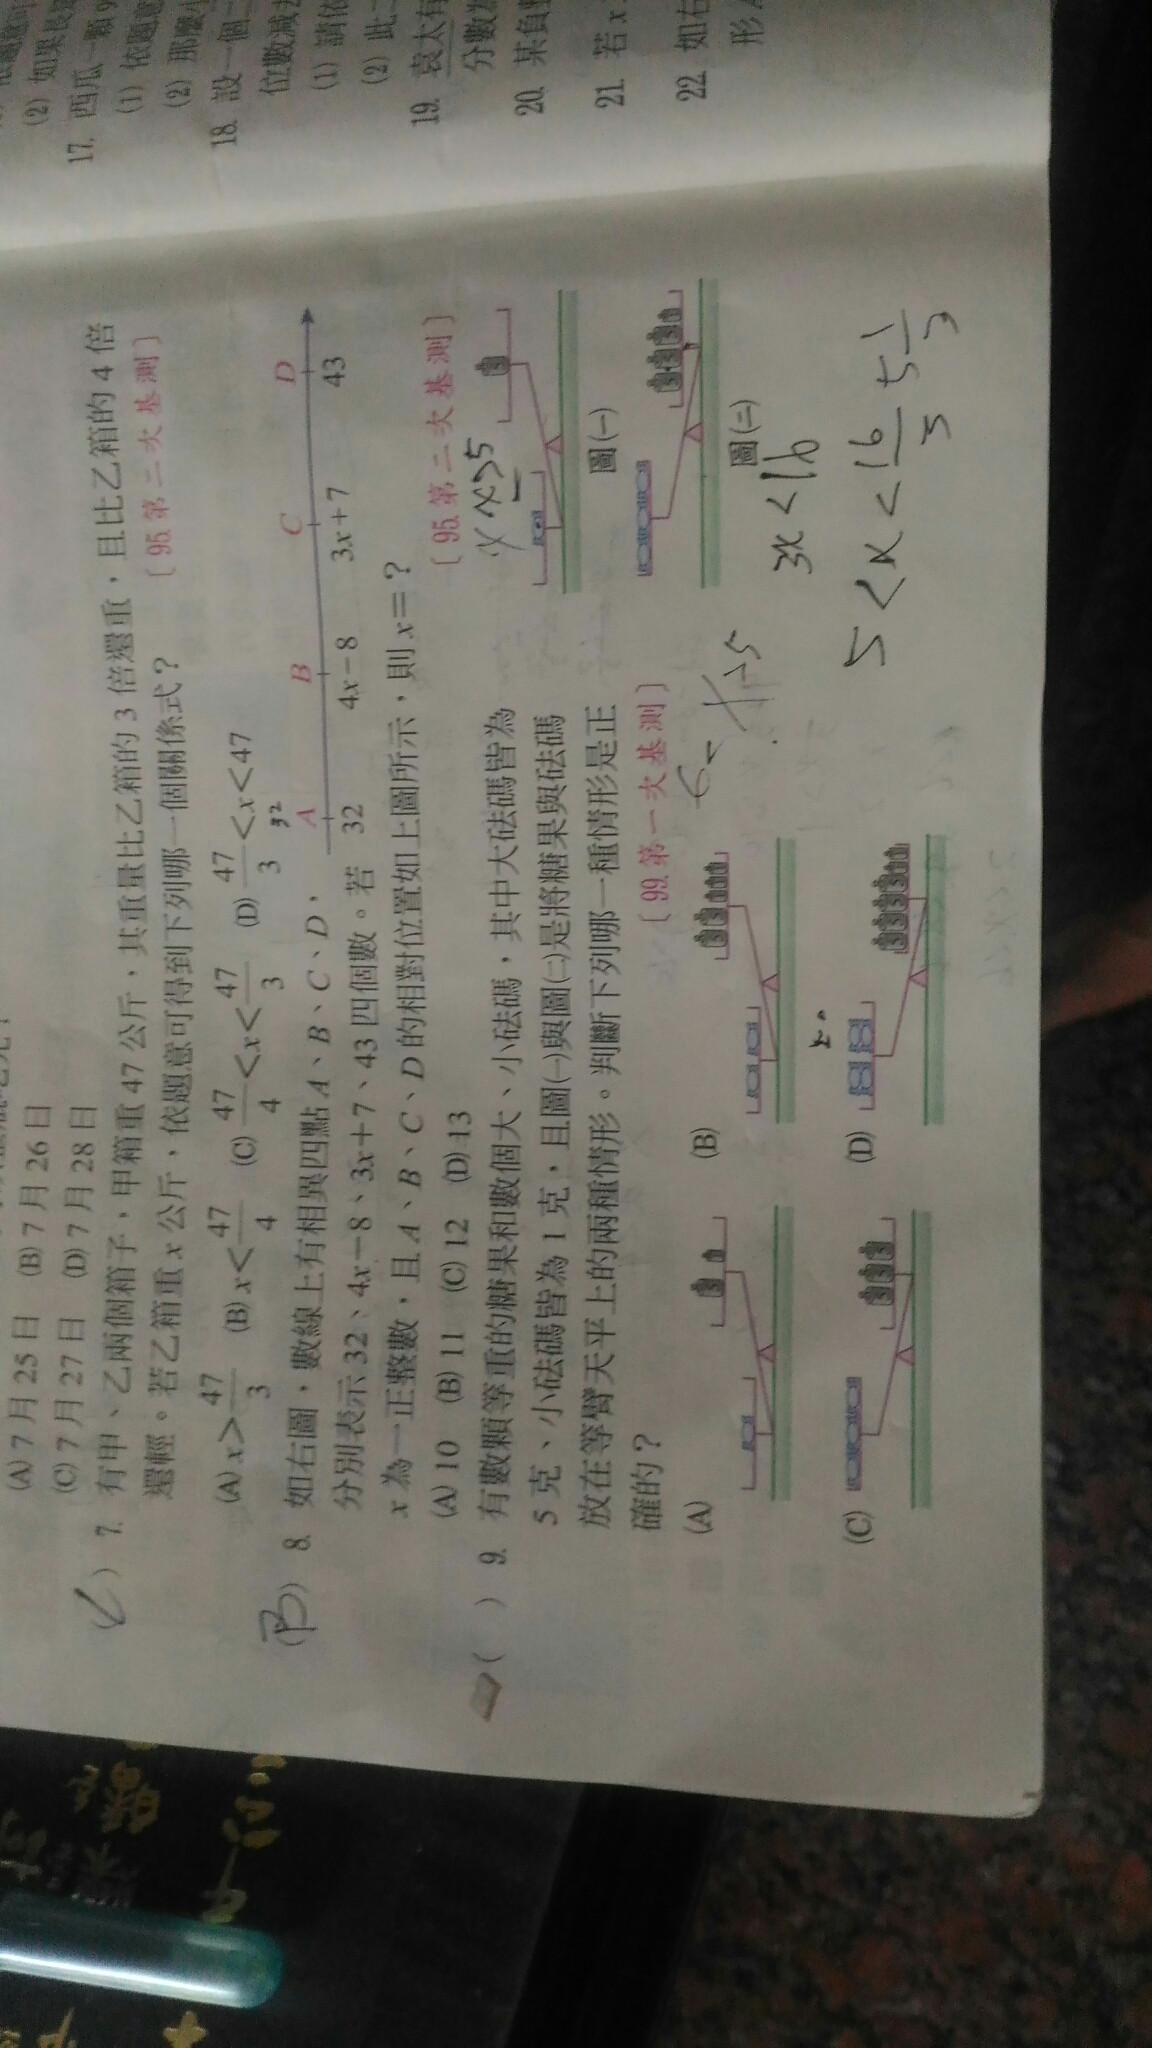 (A) 7月25日 (B) 7月26日
(C) 7月27日 (D) 7月28日
(C) 7. 有甲、乙兩個箱子，甲箱重 47 公斤，其重量比乙箱的 3 倍還重，且比乙箱的 4 倍
還輕。若乙箱重 x 公斤，依題意可得到下列哪一個關係式？
〔95.第二次基測〕
(A) x > 47/3 (B) x < 47/4 (C) 47/4 < x < 47/3 (D) 47/3 < x < 47
(B) 8. 如右圖，數線上有相異四點 A、B、C、D，
分別表示 32、4x－8、3x＋7、43 四個數。若
x 為一正整數，且 A、B、C、D 的相對位置如上圖所示，則 x＝？
(A) 10 (B) 11 (C) 12 (D) 13
〔95.第二次基測〕
A B C D
32 4x－8 3x＋7 43
32
( ) 9. 有數顆等重的糖果和數個大、小砝碼，其中大砝碼皆為
5 克、小砝碼皆為 1 克，且圖(一)與圖(二)是將糖果與砝碼
放在等臂天平上的兩種情形。判斷下列哪一種情形是正
確的？
〔99.第一次基測〕
x>5
圖(一)
圖(二)
(A)
(B)
(C)
(D)
3x<16
5<x<16/3 5 1/3
17. 西瓜一顆
(1) 依題意
(2) 那麼
18. 設一個
位數減去
(1) 請依
(2) 此
19. 袁太有
分數為
20. 某負
21. 若 x
22. 如右
形